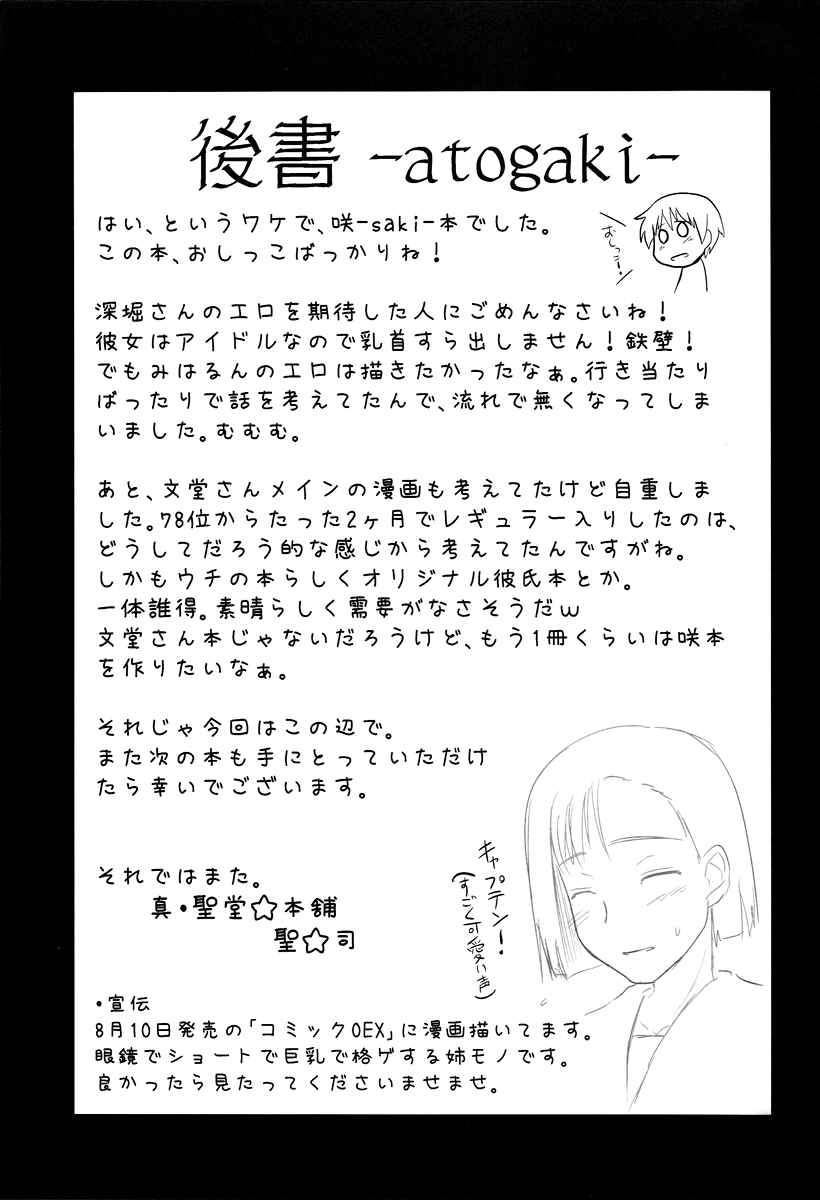 後書 -atogaki-
はい、というワケで、咲-saki-本でした。
この本、おしっこばっかりね！
おしっこー！
深堀さんのエロを期待した人にごめんなさいね！
彼女はアイドルなので乳首すら出しません！鉄壁！
でもみはるんのエロは描きたかったなぁ。行き当たり
ばったりで話を考えてたんで、流れで無くなってしま
いました。むむむ。
あと、文堂さんメインの漫画も考えてたけど自重しま
した。78位からたった2ヶ月でレギュラー入りしたのは、
どうしてだろう的な感じから考えてたんですがね。
しかもウチの本らしくオリジナル彼氏本とか。
一体誰得。素晴らしく需要がなさそうだw
文堂さん本じゃないだろうけど、もう1冊くらいは咲本
を作りたいなぁ。
それじゃ今回はこの辺で。
また次の本も手にとっていただけ
たら幸いでございます。
キャプテン！
(すごく可愛い声)
それではまた。
真・聖堂☆本舗
聖☆司
・宣伝
8月10日発売の「コミック0EX」に漫画描いてます。
眼鏡でショートで巨乳で格ゲする姉モノです。
良かったら見たってくださいませませ。